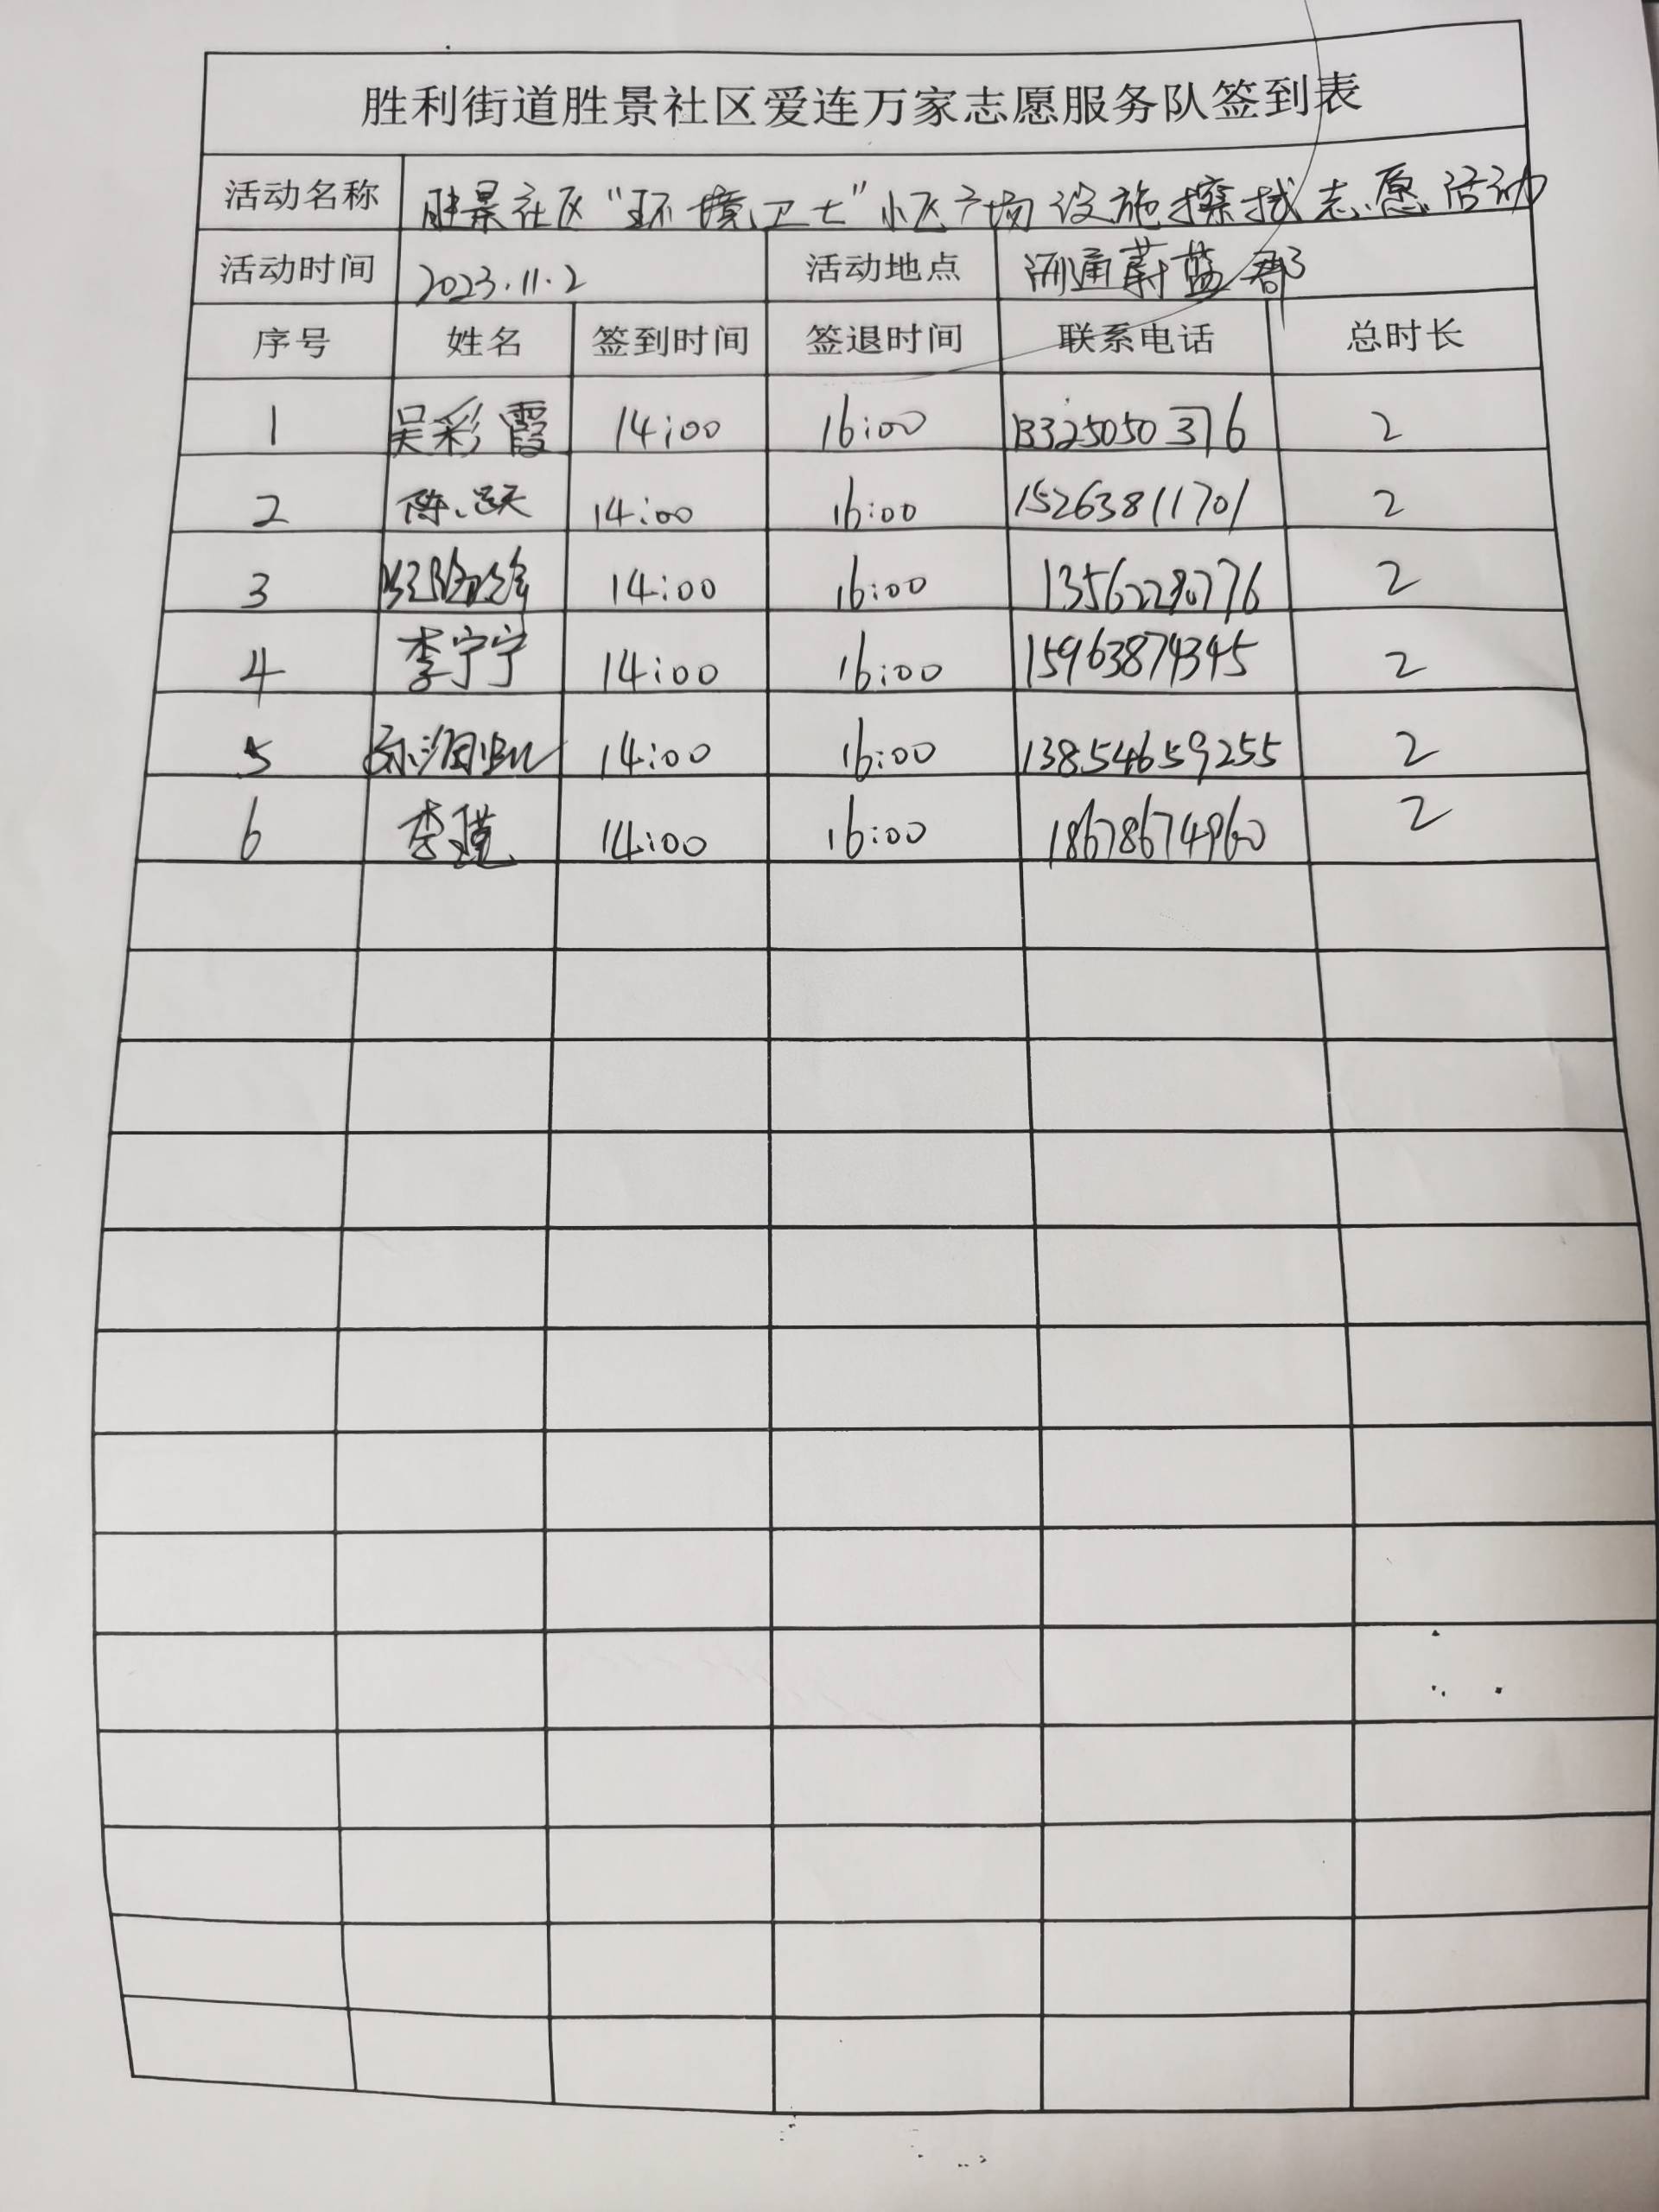 胜利街道胜景社区爱连万家志愿服务队签到表
活动名称 胜景社区“环境卫士”小区广场设施擦拭志愿活动
活动时间 2023.11.2 活动地点 通蔚蓝郡
序号 姓名 签到时间 签退时间 联系电话 总时长
1 吴彩霞 14:00 16:00 13325050376 2
2 陈跃 14:00 16:00 15263811701 2
3 14:00 16:00 2
4 李宁宁 14:00 16:00 15963874345 2
5 14:00 16:00 13854659255 2
6 李 14:00 16:00 18678674960 2